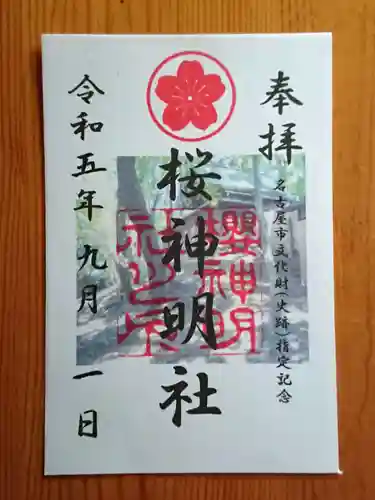 奉拝
名古屋市文化財(史跡)指定記念
桜神明社
櫻神明
社之印
令和五年九月一日